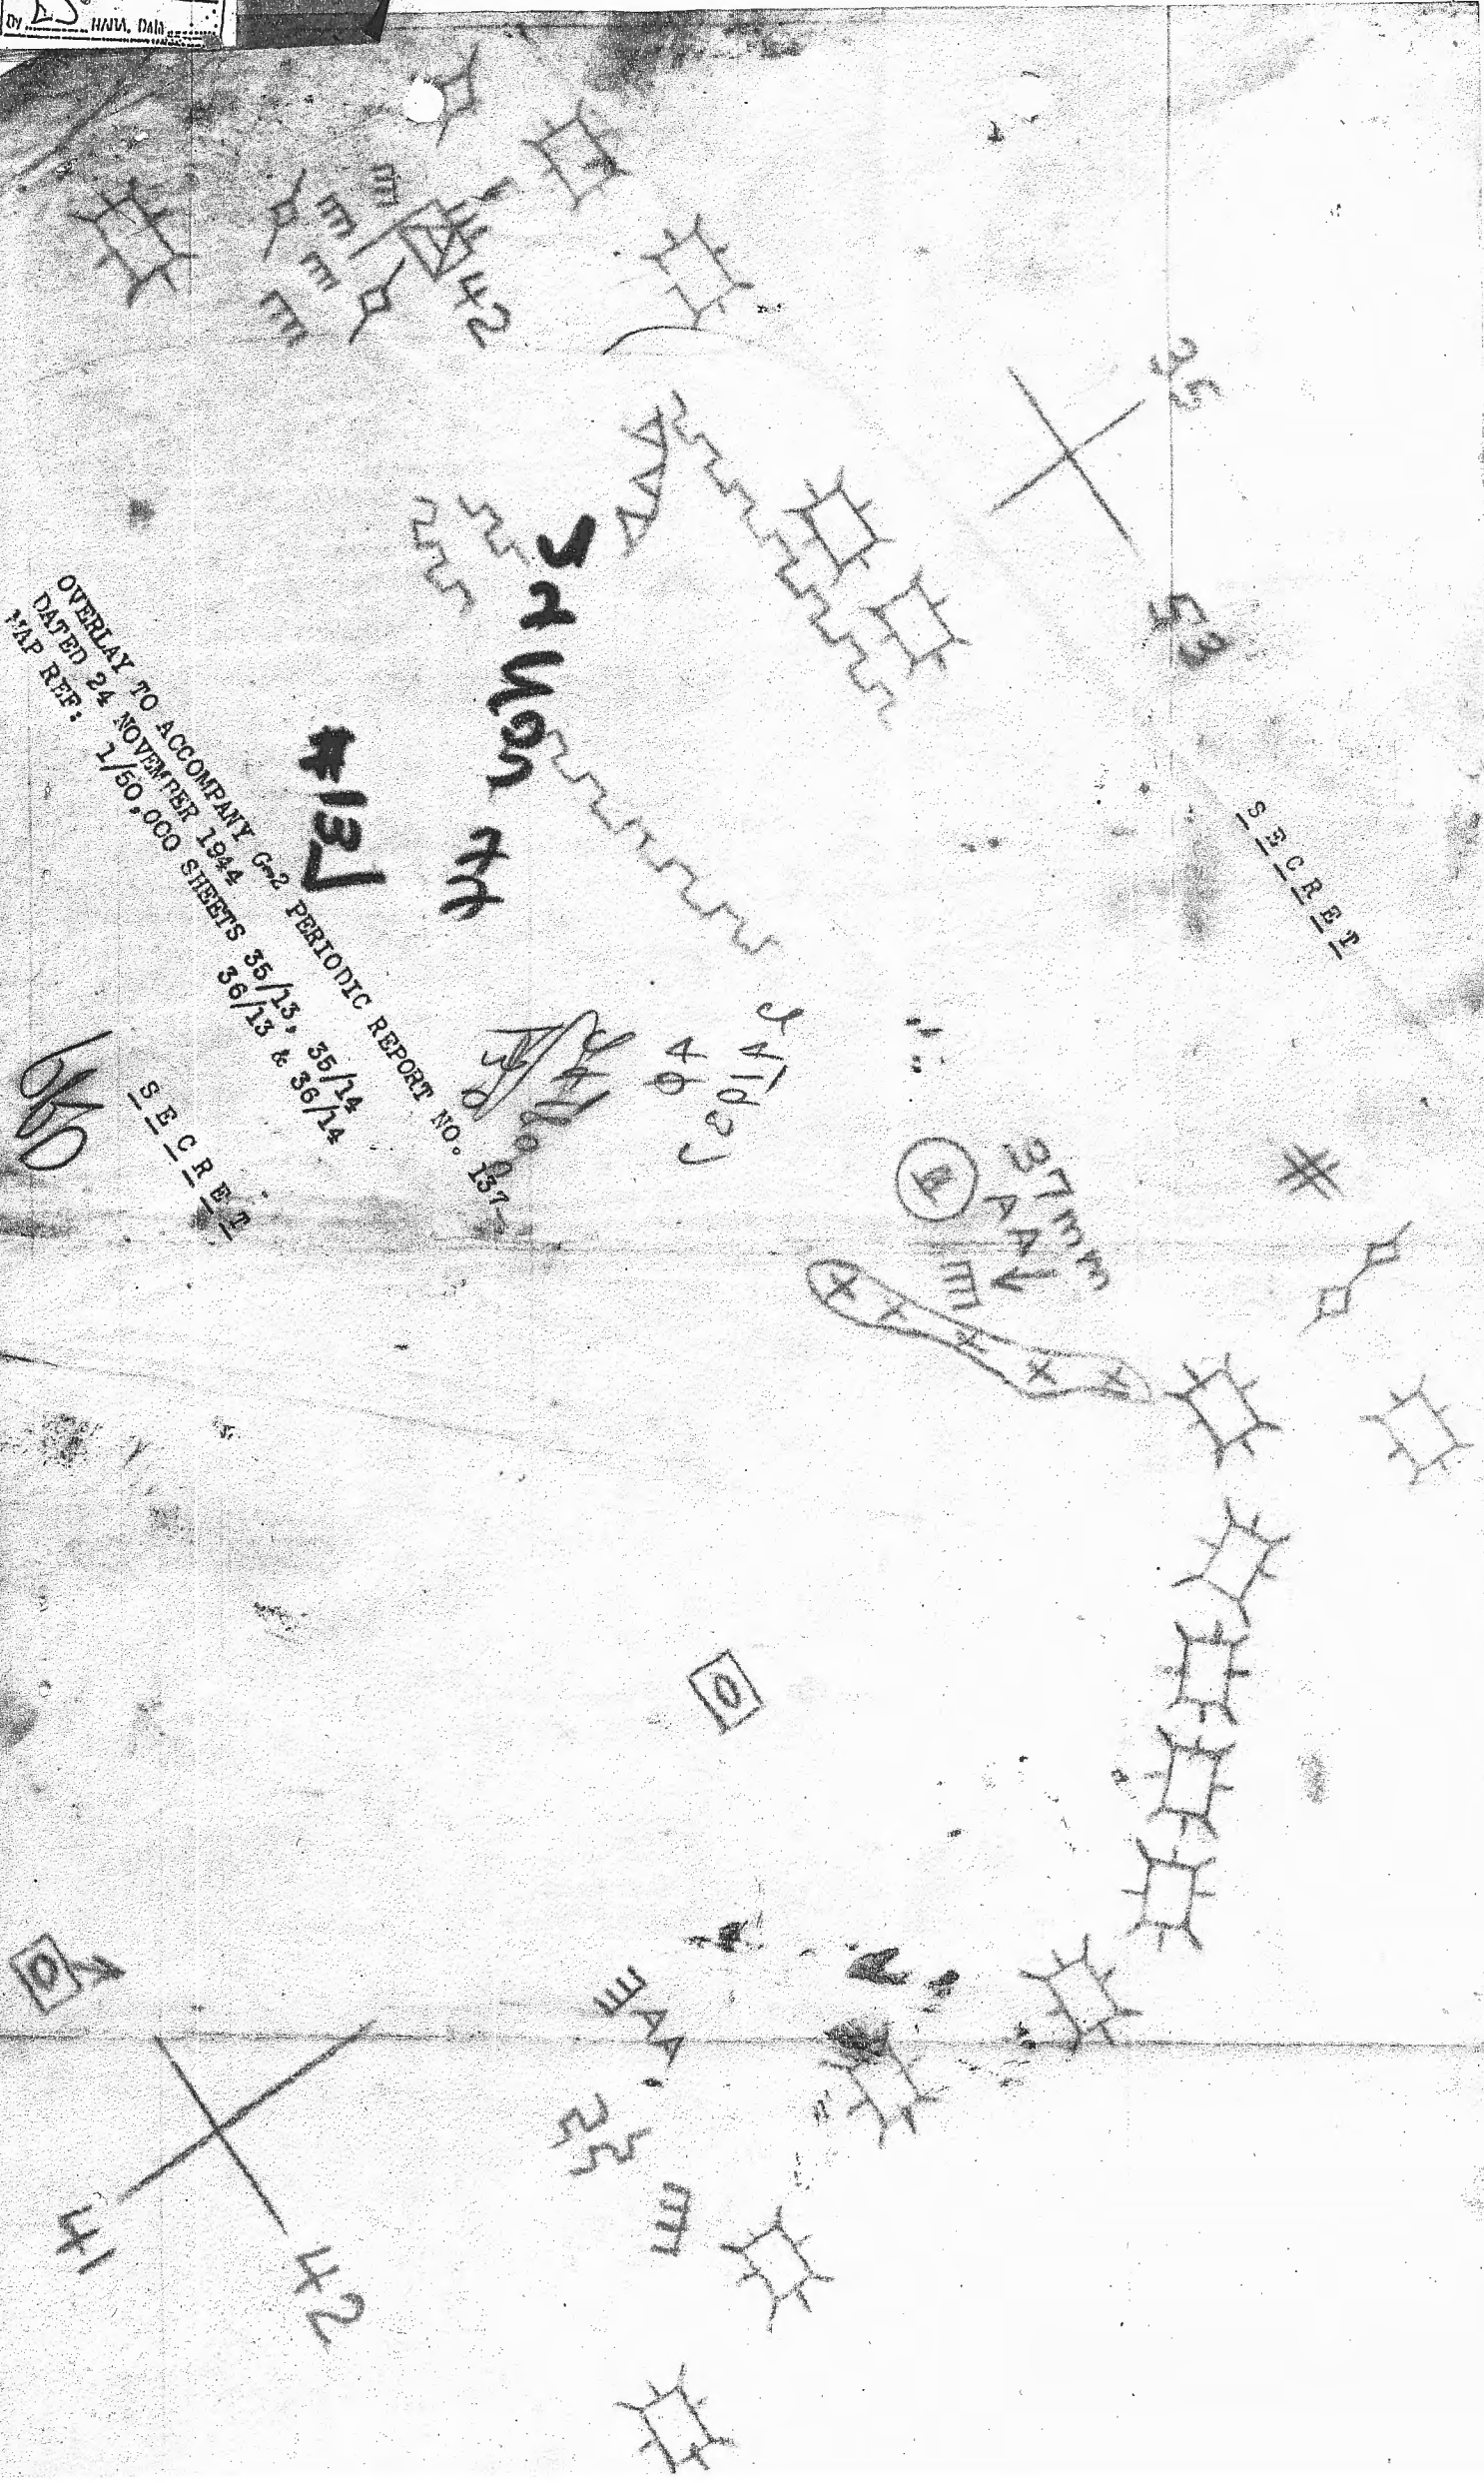 BY NARA, Date
42
35
53
S E C R E T
24 Nov 44
#137
OVERLAY TO ACCOMPANY G-2 PERIODIC REPORT NO. 137
DATED 24 NOVEMBER 1944
MAP REF: 1/50,000 SHEETS 35/13, 35/14
36/13 & 36/14
S E C R E T
37mm
AA
AA
41
42